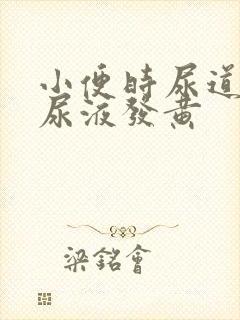 小便時尿道
尿液發黃
梁銘會